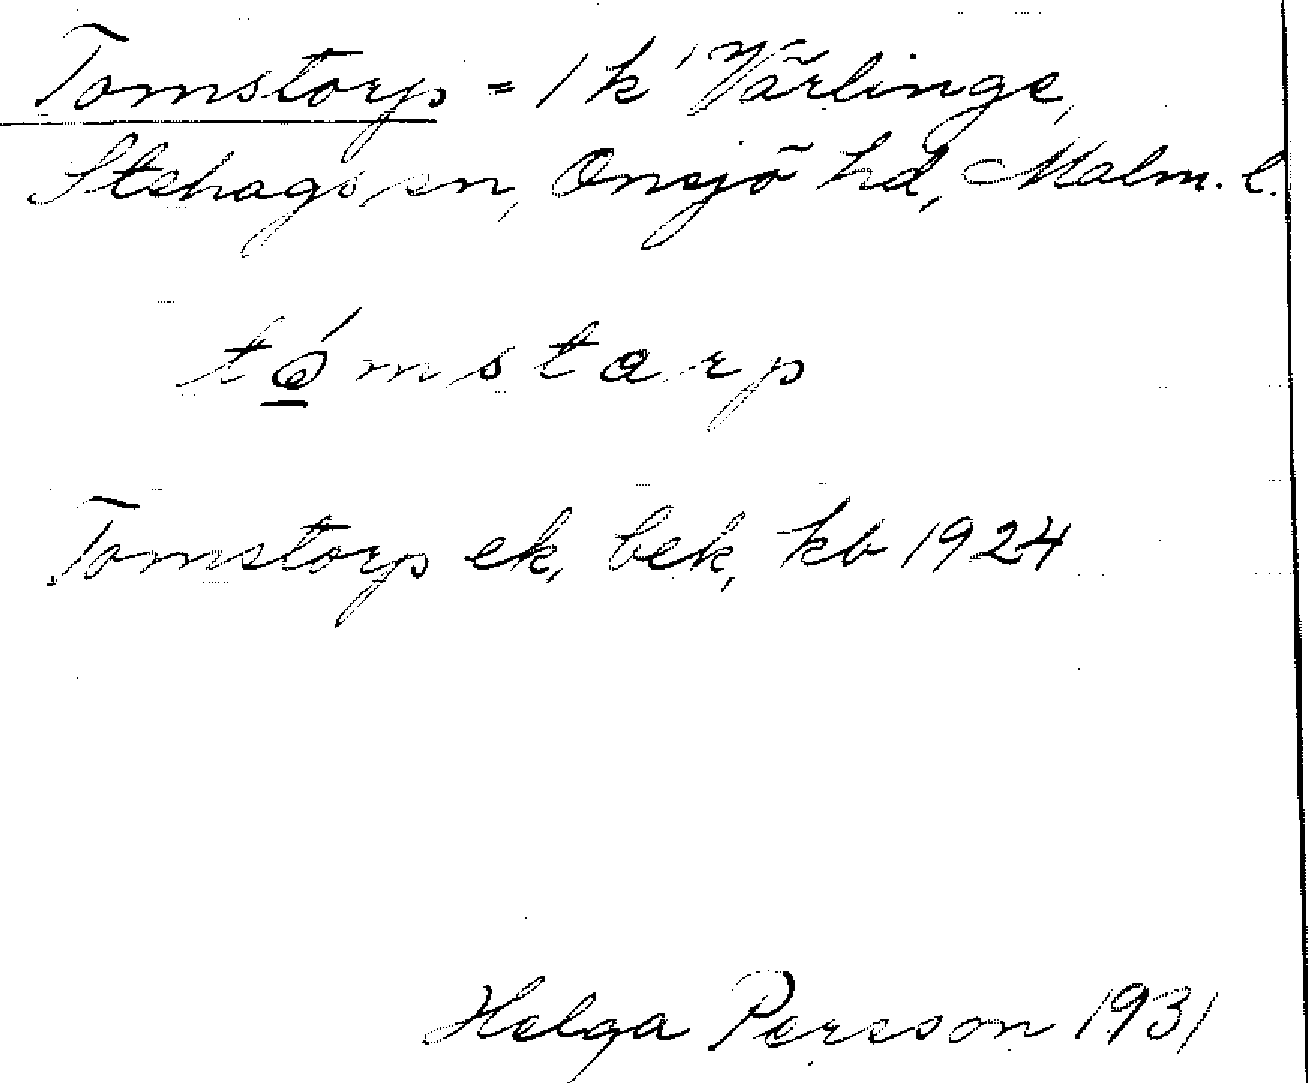 Tomstorp = 1 k' Värlinge,
Stehags sn, Onsjö hd, Malm. l.
tómstarp
Tomstorp ek, bek, kb 1924
Helga Persson 1931